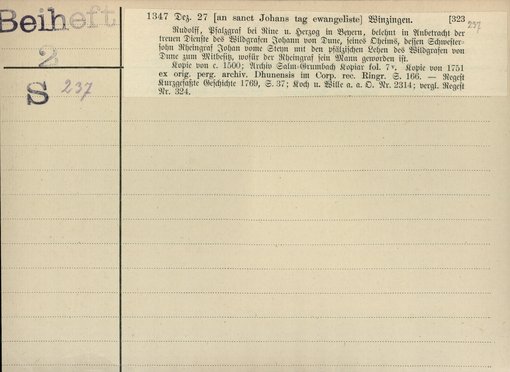 Beiheft
2
S 237
1347 Dez. 27 [an sanct Johans tag ewangeliste] Winzingen. [323
237
Rudolff, Pfalzgraf bei Rine u. Herzog in Beyern, belehnt in Anbetracht der
treuen Dienste des Wildgrafen Johann von Dune, seines Oheims, dessen Schwester-
sohn Rheingraf Johan vome Steyn mit den pfälzischen Lehen des Wildgrafen von
Dune zum Mitbesitz, wofür der Rheingraf sein Mann geworden ist.
Kopie von c. 1500; Archiv Salm-Grumbach Kopiar fol. 7v. Kopie von 1751
ex orig. perg. archiv. Dhunensis im Corp. rec. Ringr. S. 166. — Regest
Kurzgefaßte Geschichte 1769, S. 37; Koch u. Wille a. a. O. Nr. 2314; vergl. Regest
Nr. 324.